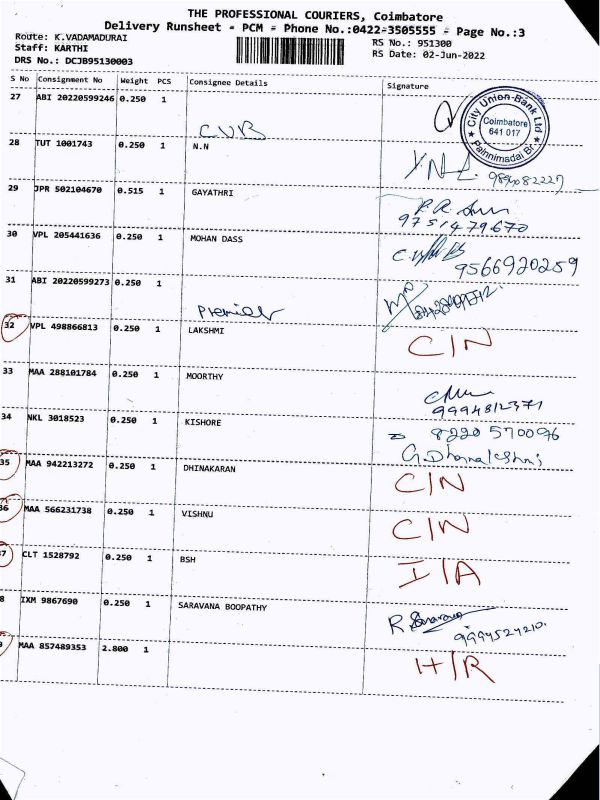 THE PROFESSIONAL COURIERS, Coimbatore
Delivery Runsheet - PCM - Phone No.:0422-3505555 - Page No.:3
Route: K.VADAMADURAI
RS No.: 951300
Staff: KARTHI
RS Date: 02-Jun-2022
DRS No.: DCJB95130003
S No Consignment No Weight PCS Consignee Details Signature
27 ABI 20220599246 0.250 1 CUB
City Union Bank Ltd
Coimbatore
641 017
28 TUT 1001743 0.250 1 N.N
29 JPR 502104670 0.515 1 GAYATHRI
9751479670
30 VPL 205441636 0.250 1 MOHAN DASS
9566920259
31 ABI 20220599273 0.250 1 Premier
32 VPL 498866813 0.250 1 LAKSHMI C/N
33 MAA 288101784 0.250 1 MOORTHY
9994812371
34 NKL 3018523 0.250 1 KISHORE 8220570096
35 MAA 942213272 0.250 1 DHINAKARAN C/N
36 MAA 566231738 0.250 1 VISHNU C/N
7 CLT 1528792 0.250 1 BSH I/A
8 IXM 9867690 0.250 1 SARAVANA BOOPATHY
9994524210.
MAA 857489353 2.800 1 H/R